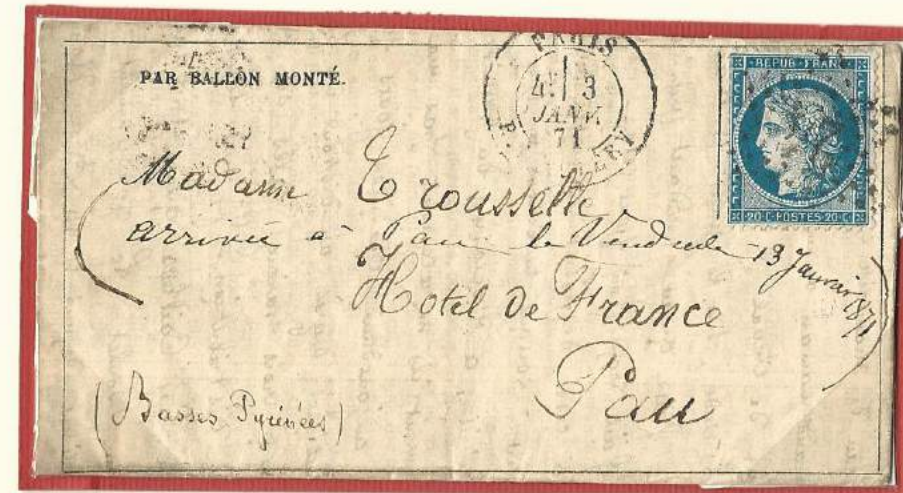 PAR BALLON MONTÉ.
PARIS
4E 3
JANV.
71
REPUB. FRANC
20·C·POSTES·20·C
Madame Trousselle
(arrivée à Pau le Vendredi 13 Janvier 1871)
Hotel de France
Pau
(Basses Pyrénées)